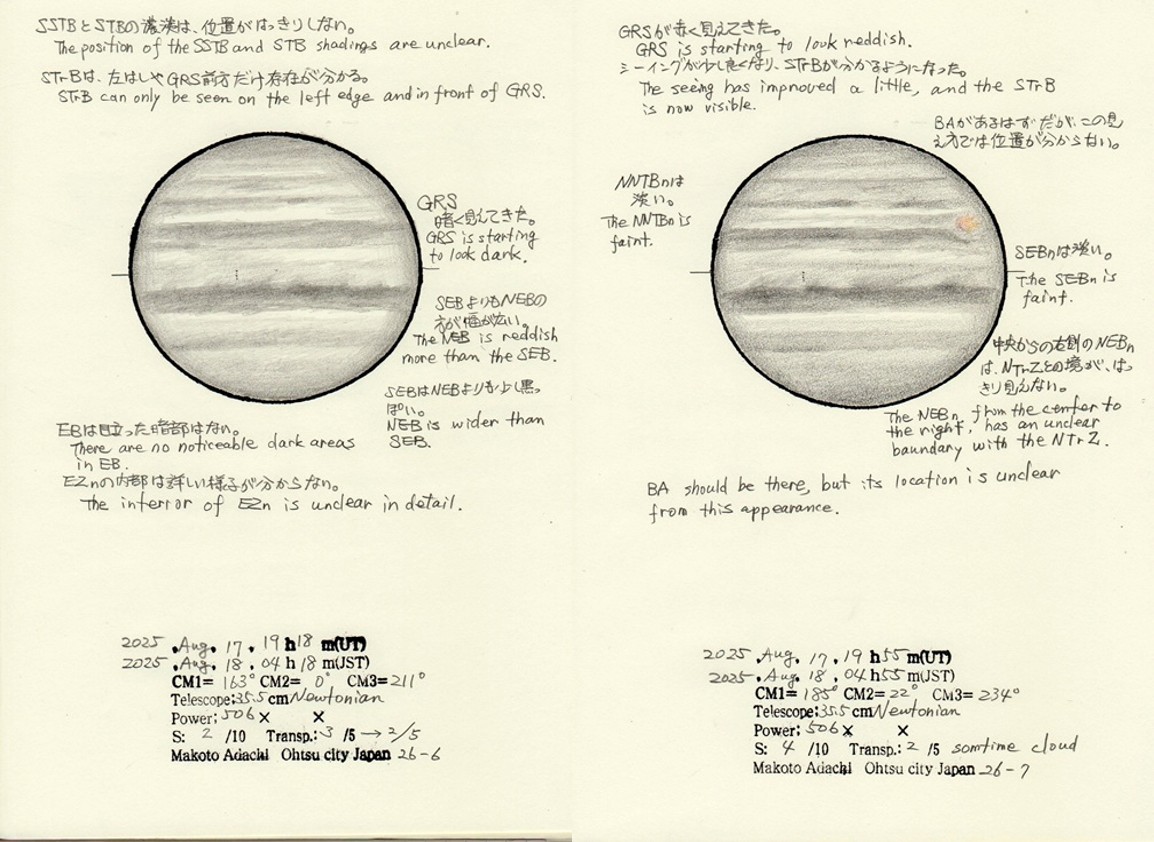 SSTBとSTBの濃淡は、位置がはっきりしない。
The position of the SSTB and STB shadings are unclear.
STrBは、左はしやGRS前方だけ存在が分かる。
STrB can only be seen on the left edge and in front of GRS.
GRS
暗く見えてきた。
GRS is starting
to look dark.
SEBよりもNEBの
方が幅が広い。
The NEB is reddish
more than the SEB.
SEBはNEBよりも少し黒っ
ぽい。
NEB is wider than
SEB.
EBは目立った暗部はない。
There are no noticeable dark areas
in EB.
EZnの内部は詳しい様子が分からない。
The interror of EZn is unclear in detail.
2025 .Aug. 17 . 19 h 18 m(UT)
2025 .Aug. 18 . 04 h 18 m(JST)
CM1= 163° CM2= 0° CM3= 211°
Telescope: 35.5 cm Newtonian
Power: 506 × ×
S: 2 /10 Transp.: 3 /5 → 2/5
Makoto Adachi Ohtsu city Japan 26-6
GRSが赤く見えてきた。
GRS is starting to look reddish.
シーイングが少し良くなり、STrBが分かるようになった。
The seeing has improved a little, and the STrB
is now visible.
BAがあるはずだが、この見
え方では位置が分からない。
NNTBnは
淡い。
The NNTBn is
faint.
SEBnは淡い。
The SEBn is
faint.
中央からの右側のNEBn
は、NTrZとの境が、はっ
きり見えない。
The NEBn, from the center to
the right, has an unclear
baundary with the NTrZ.
BA should be there, but its location is unclear
from this appearance.
2025 .Aug. 17 . 19 h 55 m(UT)
2025 .Aug. 18 . 04 h 55 m(JST)
CM1= 185° CM2= 22° CM3= 234°
Telescope: 35.5 cm Newtonian
Power: 506 × ×
S: 4 /10 Transp.: 2 /5 somtime cloud
Makoto Adachi Ohtsu city Japan 26-7